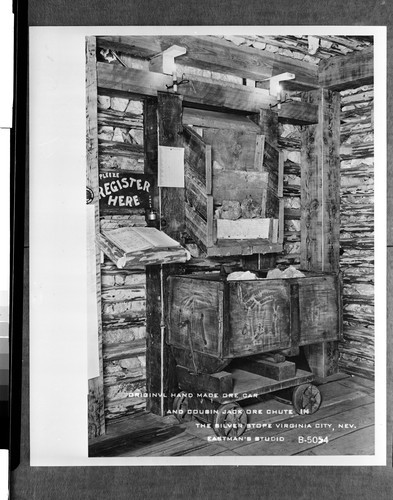 PLEEZE
REGISTER
HERE
ORIGINVL HAND MADE ORE CAR
AND COUSIN JACK ORE CHUTE IN
THE SILVER STOPE VIRGINIA CITY, NEV.
EASTMAN'S STUDIO B-5054